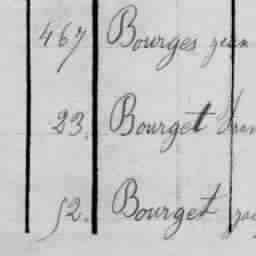 467 Bourges jean
23. Bourget
52. Bourget